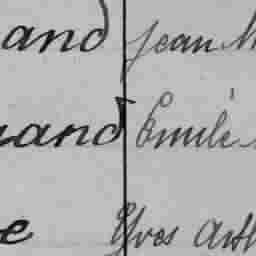 and Jean M
and Emile
e Yves Arth